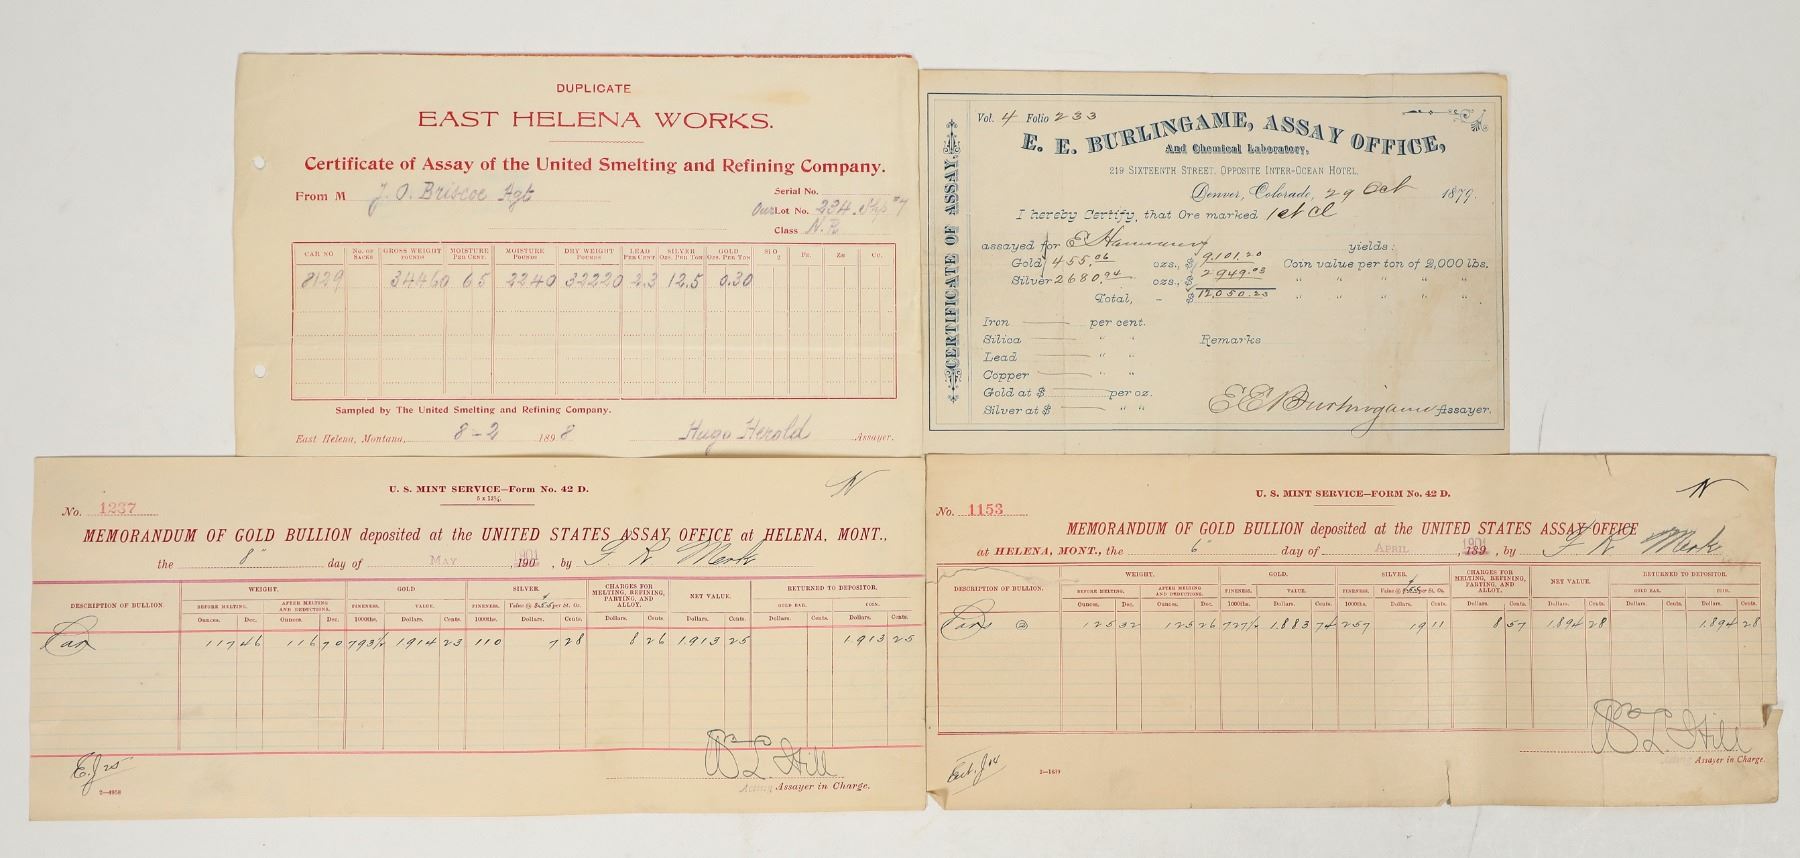 DUPLICATE
EAST HELENA WORKS.
Certificate of Assay of the United Smelting and Refining Company.
From M J. O. Briscoe Agt
Serial No.
Our Lot No. 234. Shp #7
Class N.R.
CAR NO No. of SACKS GROSS WEIGHT POUNDS MOISTURE PER CENT. MOISTURE POUNDS DRY WEIGHT POUNDS LEAD PER CENT SILVER OZS. PER TON GOLD OZS. PER TON SIO 2 Fe. Zn Cu.
8129 34460 6.5 2240 32220 2.3 12.5 0.30
Sampled by The United Smelting and Refining Company.
East Helena, Montana, 8-2 1898 Hugo Herold Assayer.
CERTIFICATE OF ASSAY.
Vol. 4 Folio 233
E. E. BURLINGAME, ASSAY OFFICE,
And Chemical Laboratory,
219 SIXTEENTH STREET, OPPOSITE INTER-OCEAN HOTEL.
Denver, Colorado, 29 Oct 1879.
I hereby Certify, that Ore marked 1st Cl
assayed for E yields:
Gold 455.06 ozs., $ 9,101.20 Coin value per ton of 2,000 lbs.
Silver 2680.94 ozs., $ 2949.03 " " " " "
Total, - $ 12,050.23 " " " " "
Iron per cent.
Silica " " Remarks
Lead " "
Copper " "
Gold at $ per oz.
Silver at $ " " E E Burlingame Assayer.
U. S. MINT SERVICE—Form No. 42 D.
5 x 13¼. N
No. 1237
MEMORANDUM OF GOLD BULLION deposited at the UNITED STATES ASSAY OFFICE at HELENA, MONT.,
the 8" day of MAY 1901 190 , by F. R. Merk
DESCRIPTION OF BULLION. WEIGHT. GOLD SILVER. CHARGES FOR MELTING, REFINING, PARTING, AND ALLOY. NET VALUE. RETURNED TO DEPOSITOR.
BEFORE MELTING. AFTER MELTING AND DEDUCTIONS. FINENESS. VALUE. FINENESS. Value @ $ .55 per St. Oz. GOLD BAR. COIN.
Ounces. Dec. Ounces. Dec. 1000ths. Dollars. Cents. 1000ths. Dollars. Cents. Dollars. Cents. Dollars. Cents. Dollars. Cents. Dollars. Cents.
117 46 116 70 793½ 1914 23 110 7 28 8 26 1.913 25 1.913 25
B L Hill
E.J 25
2—4958
Acting Assayer in Charge.
U. S. MINT SERVICE—FORM No. 42 D.
N
No. 1153
MEMORANDUM OF GOLD BULLION deposited at the UNITED STATES ASSAY OFFICE
at HELENA, MONT., the 6" day of APRIL , 1901 189 , by F R Merk
DESCRIPTION OF BULLION. WEIGHT. GOLD. SILVER. CHARGES FOR MELTING, REFINING, PARTING, AND ALLOY. NET VALUE. RETURNED TO DEPOSITOR.
BEFORE MELTING. AFTER MELTING AND DEDUCTIONS. FINENESS. VALUE. FINENESS. Value @ $ per St. Oz. GOLD BAR. COIN.
Ounces. Dec. Ounces. Dec. 1000ths. Dollars. Cents. 1000ths. Dollars. Cents. Dollars. Cents. Dollars. Cents. Dollars. Cents. Dollars. Cents.
125 32 125 26 727½ 1.883 74 257 19 11 8 57 1.894 28 1.894 28
B L Hill
2—1659
Acting Assayer in Charge.